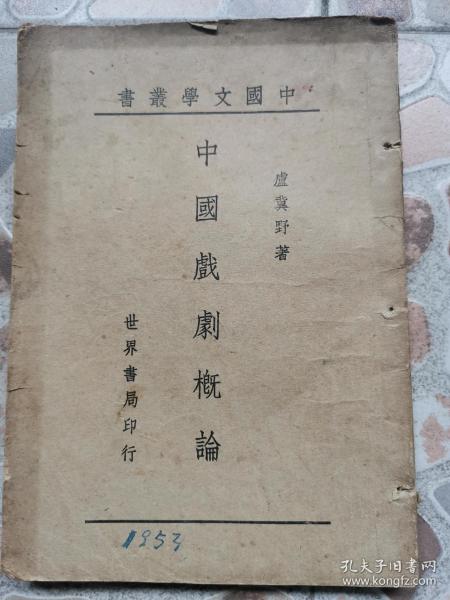 書叢學文國中
盧冀野著
中國戲劇概論
世界書局印行
1953
孔夫子旧书网
www.kongfz.com